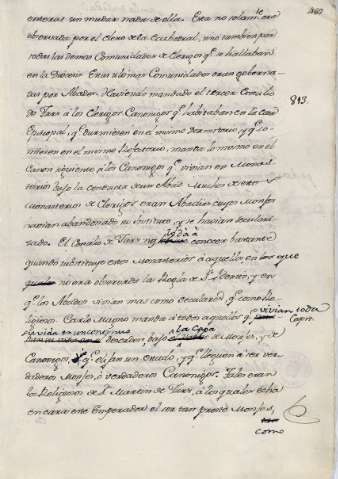 enteras sin mudar nada de ella. Esto no solam.te era
observado por el clero de la Cathedral, sino tambien por
todas las demas Comunidades de Clerigos q.e se hallaban
en la Diocesi. Estas ultimas Comunidades eran goberna-
das por Abades. Haviendo mandado el tercer Concilio
de Tours à los Clerigos Canonigos q.e habitaban en la casa
Episcopal q.e durmiesen en el mismo Dormitorio y q.e co-
miesen en el mismo Refectorio, manda lo mismo en el
Canon siguiente à los Canonigos q.e vivian en Monas-
terios bajo la conducta de un Abad. Muchos de estos
Monasterios de Clerigos eran Abadias cuyos Monjes
havian abandonado su instituto, y se havian seculari-
zado. El Concilio de Tours lo dà à conocer bastante
quando substituye estos Monasterios à aquellos en los que
no era observada la Regla de S. Benito, y en
q.e los Abades vivian mas como seculares q.e como Re-
ligiosos. Carlo Magno manda à todos aquellos q.e vivian
decian bajo la Capa de Monjes, y de
Canonigos, q.e elijan un estado, y q.e lleguen à ser ver-
daderos Monjes, ò verdaderos Canonigos. Tales eran
los Religiosos de S. Martin de Tours, à los quales echa
en cara este Emperador el ser tan presto Monjes,
como
813.